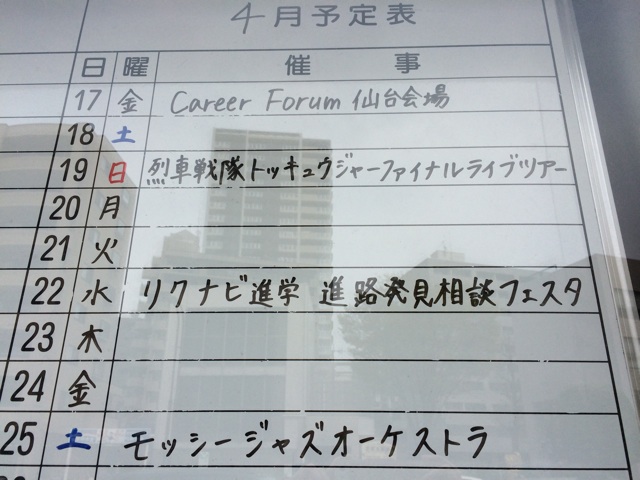 4月予定表
日 曜 催事
17 金 Career Forum 仙台会場
18 土
19 日 烈車戦隊トッキュウジャーファイナルライブツアー
20 月
21 火
22 水 リクナビ進学 進路発見相談フェスタ
23 木
24 金
25 土 モッシージャズオーケストラ